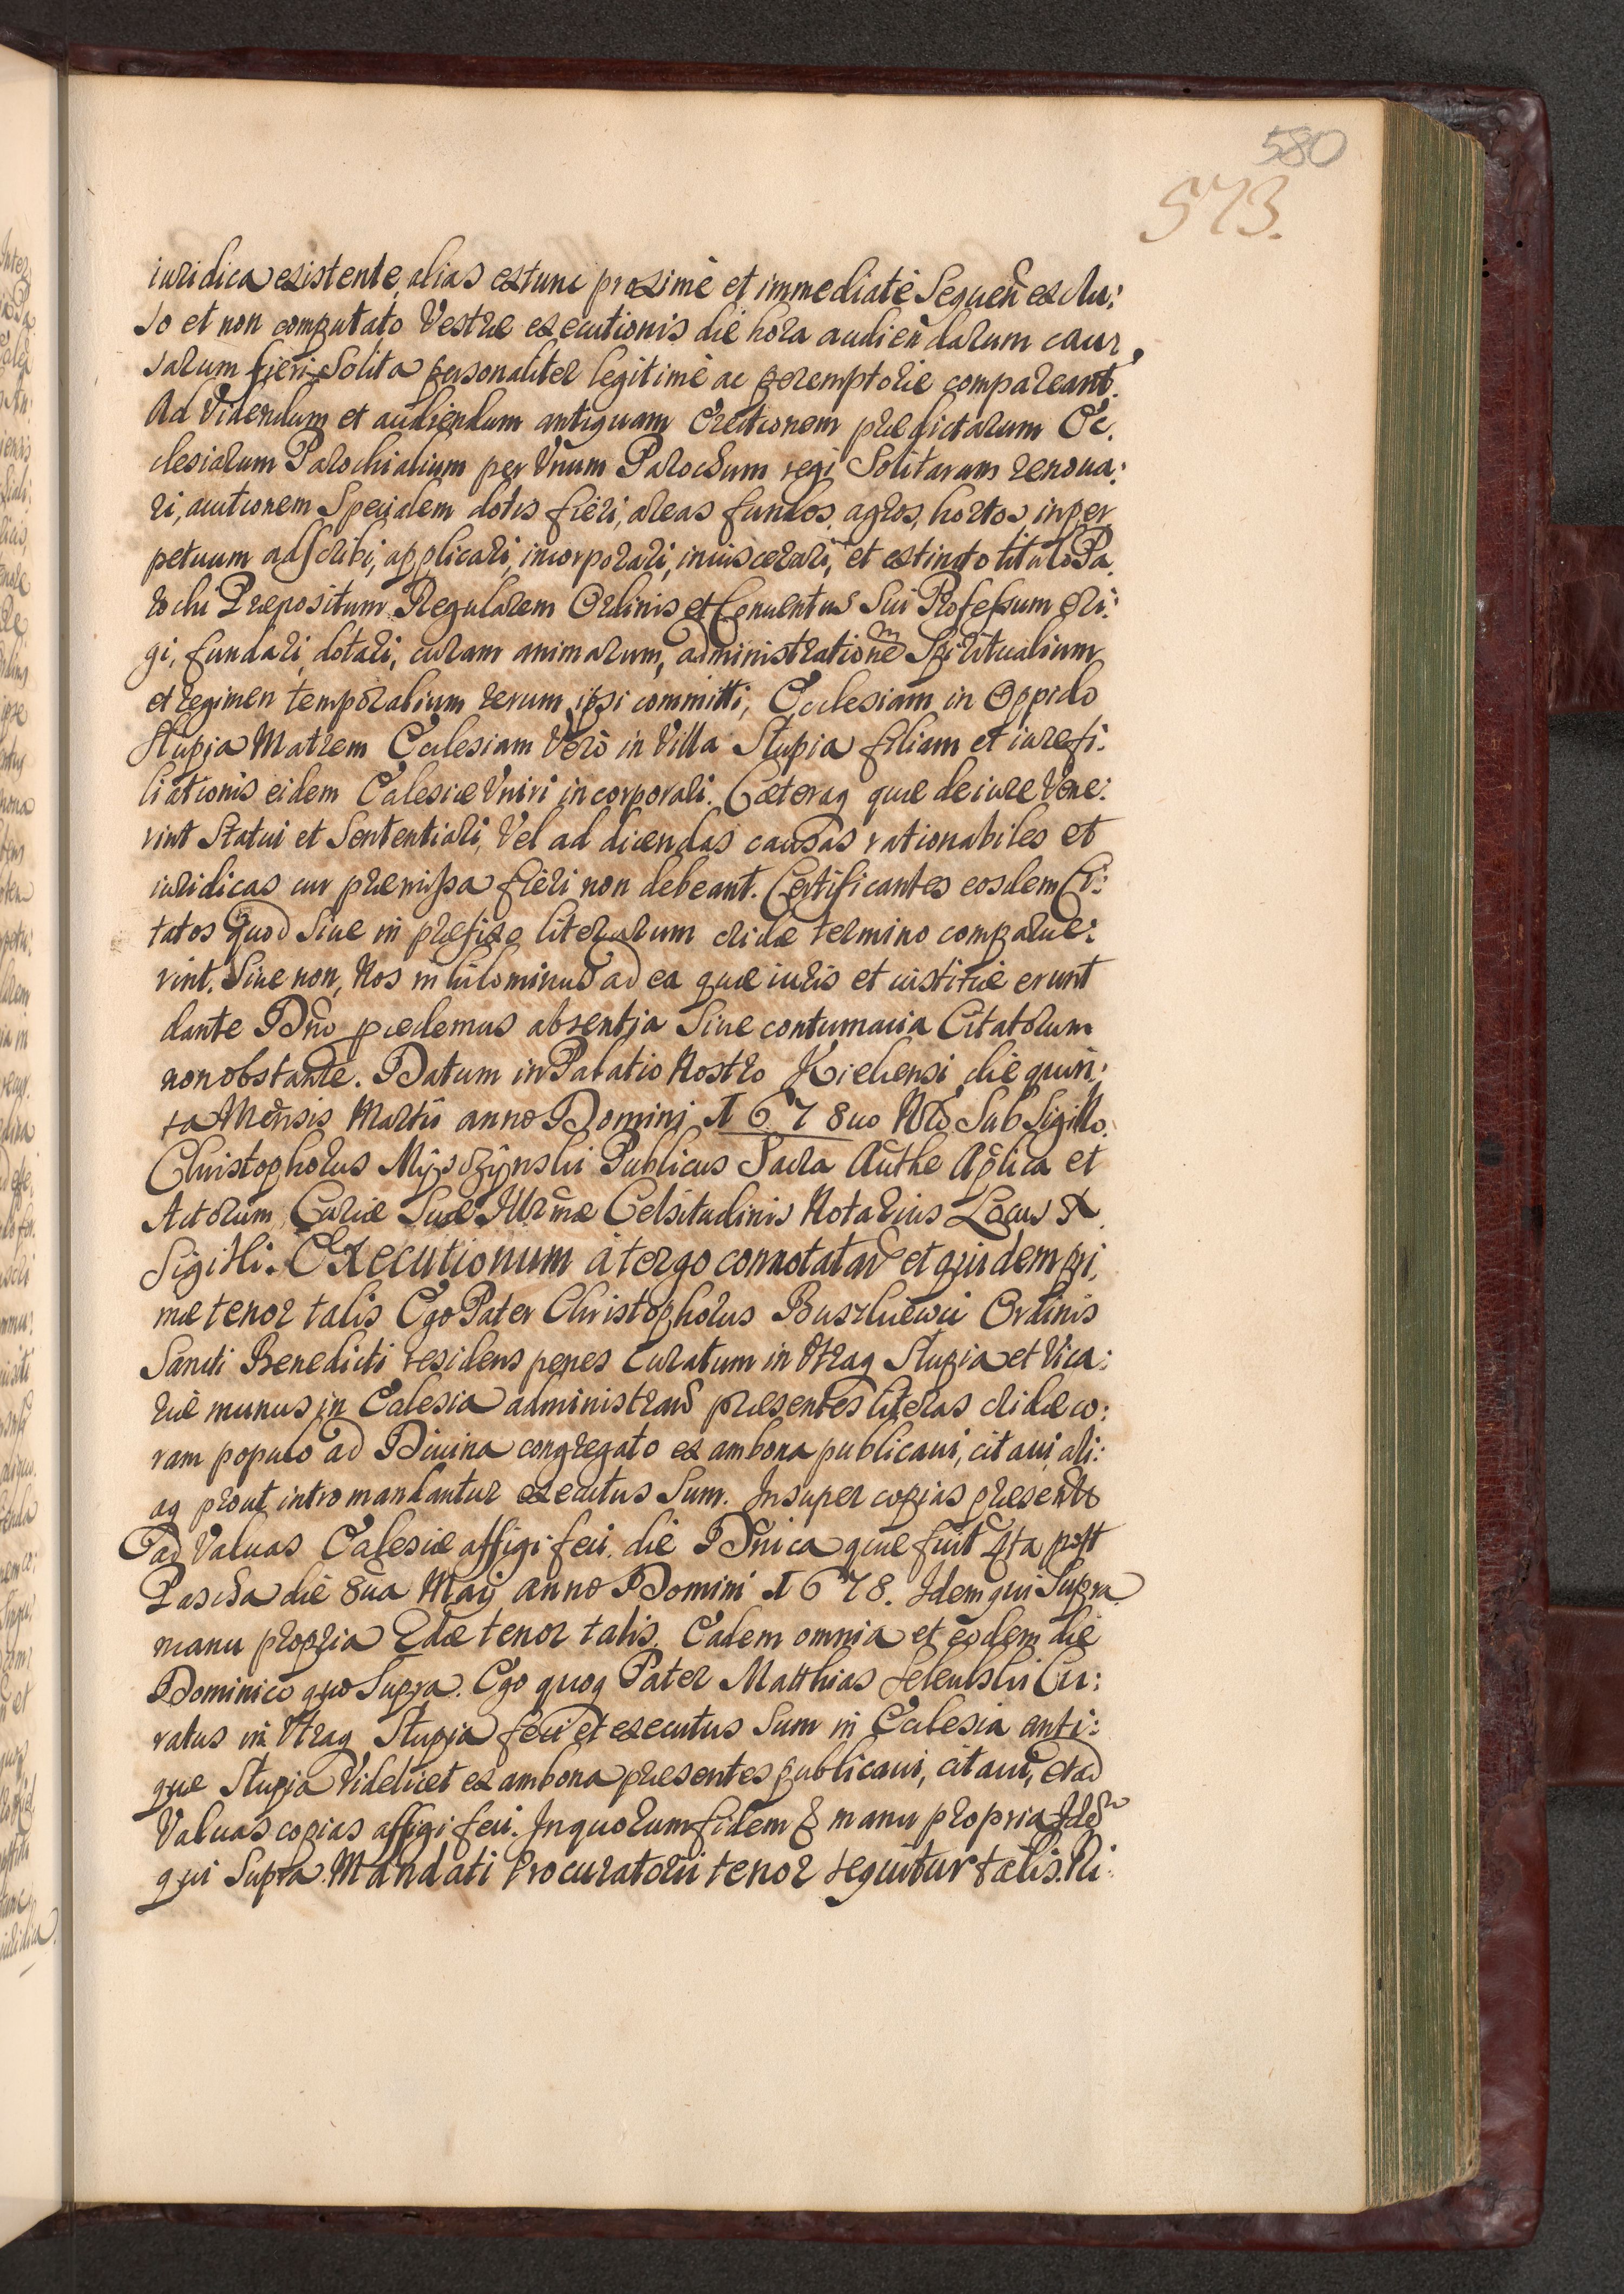 580
573.
iuridica existente, alias extunc proximè et immediatè Sequeñ exclu:
so et non computato Vestræ executionis die hora audieñdarum cau:
sarum fieri Solita personaliter legitimè ac peremptorie compareant.
Ad Videndum et audiendum antiquam Erectionem prædictarum Ec:
clesiarum Parochialium per Vnum Parochum regi Solitarum renoua:
ri, auctionem Speialem dotis fieri, areas fundos, agros, hortos, in per
petuum adscribi, applicari, incorporari, inuiscerari, et extincto titulo Pa
rochi Præpositum Regularem Ordinis et Conuentus Sui Professum Eri:
gi, fundari, dotari, curam animarum, administrationem Spiritualium
et regimen temporalium rerum ipsi committi, Ecclesiam in Oppido
Stupia Matrem Ecclesiam Verò in Villa Stupia filiam et iure fi:
liationis eidem Ecclesiæ Vniri incorporari. Cæteraq quæ de iure Vene:
rint Statui et Sententiari, Vel ad dicendas causas rationabiles et
iuridicas cur præmissa fieri non debeant. Certificantes eosdem Ci:
tatos quod Siue in præfixo literarum cridæ termino comparue:
rint. Siue non, Nos nihilominus ad ea quæ iuris et iustitiæ erunt
dante Dño procedemus absentia Siue contumacia Citatorum
non obstante. Datum in Palatio Nostro Kielcensi die quin:
ta Mensis Martii anno Domini 1678uo Nro Sub Sigillo.
Christophorus Myszczynski Publicus Sacra Authe Aplica et
Actorum Curiæ Suæ Illrmæ Celsitudinis Notarius Locus
Sigilli. Executionum à tergo connotatar et quidem pri:
mæ tenor talis Ego Pater Christophorus Buszkiewic Ordinis
Sancti Benedicti residens penes Curatum in Vtraq Stupia et Vica:
riæ munus in Ecclesia administrans præsentes literas cridæ co:
ram populo ad Diuina congregato ex ambona publicaui, citaui ali:
aq prout intro mandantur executus Sum. Insuper copias præsentes
ad Valuas Ecclesiæ affigi feci. die Dñica quæ fuit 4ta post
Pascha die 8ua Maij anno Domini 1678. Idem qui Supra
manu propria 2dæ tenor talis. Eadem omnia et eodem die
Dominico quo Supra. Ego quoq Pater Matthias Selenski Cu:
ratus in Vtraq Stupia feci et executus Sum in Ecclesia anti:
quæ Stupia Videlicet ex ambona præsentes publicaui, citaui, et ad
Valuas copias affigi feci. In quorum fidem & manu propria Idem
qui Supra. Mandati Procuratorii tenor sequitur talis. Ni: